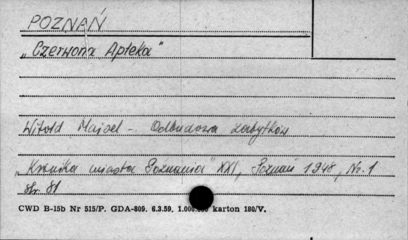 POZNAŃ
„Czerwona Apteka"
Witold Maisel - Odbudowa zabytków
„Kronika miasta Poznania" XXI, Poznań 1948, Nr. 1
str. 81
CWD B-15b Nr 515/P. GDA-809. 6.3.59. karton 180/V.